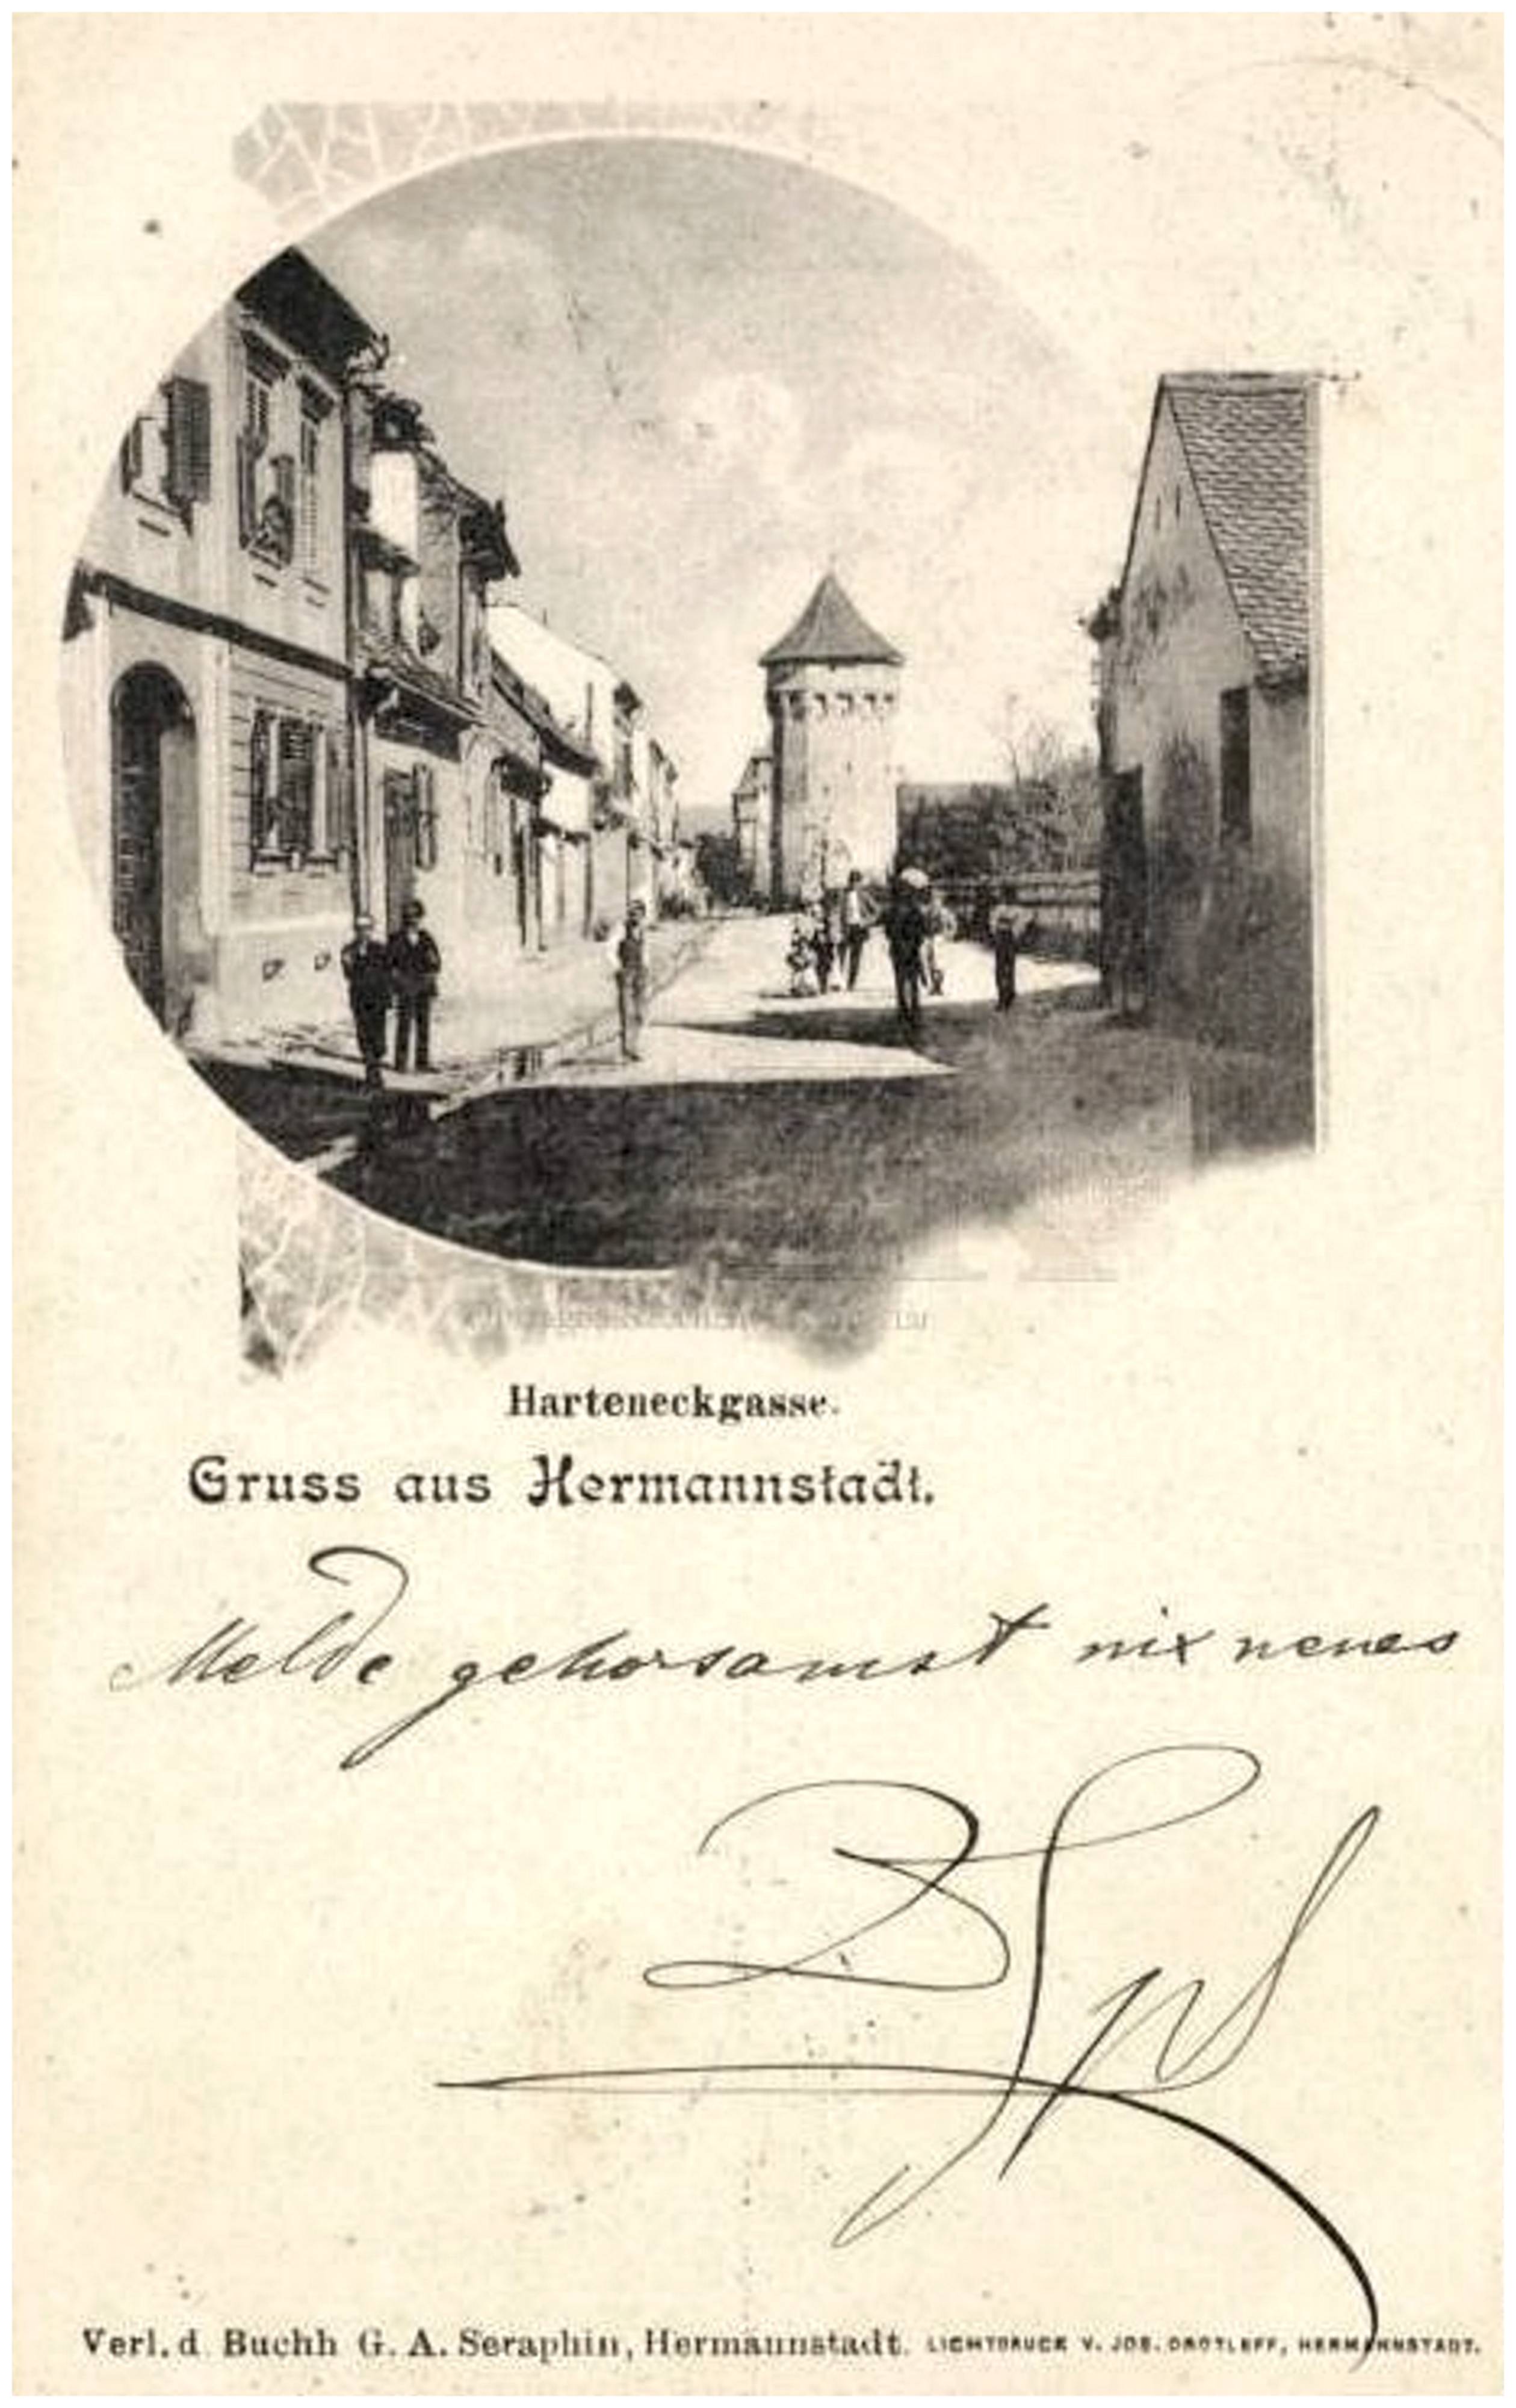 Harteneckgasse.
Gruss aus Hermannstadt.
Melde gehorsamst nix neues
Verl. d. Buchh G. A. Seraphin, Hermannstadt. LICHTDRUCK V. JOS. DROTLEFF, HERMANNSTADT.